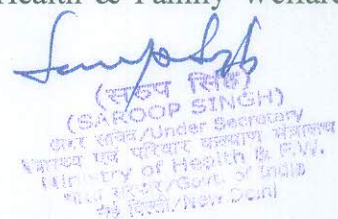 Health & Family Welfare
(सरुप सिंह)
(SAROOP SINGH)
अवर सचिव/Under Secretary
स्वास्थ्य एवं परिवार कल्याण मंत्रालय
Ministry of Health & F.W.
भारत सरकार/Govt. of India
नई दिल्ली/New Delhi